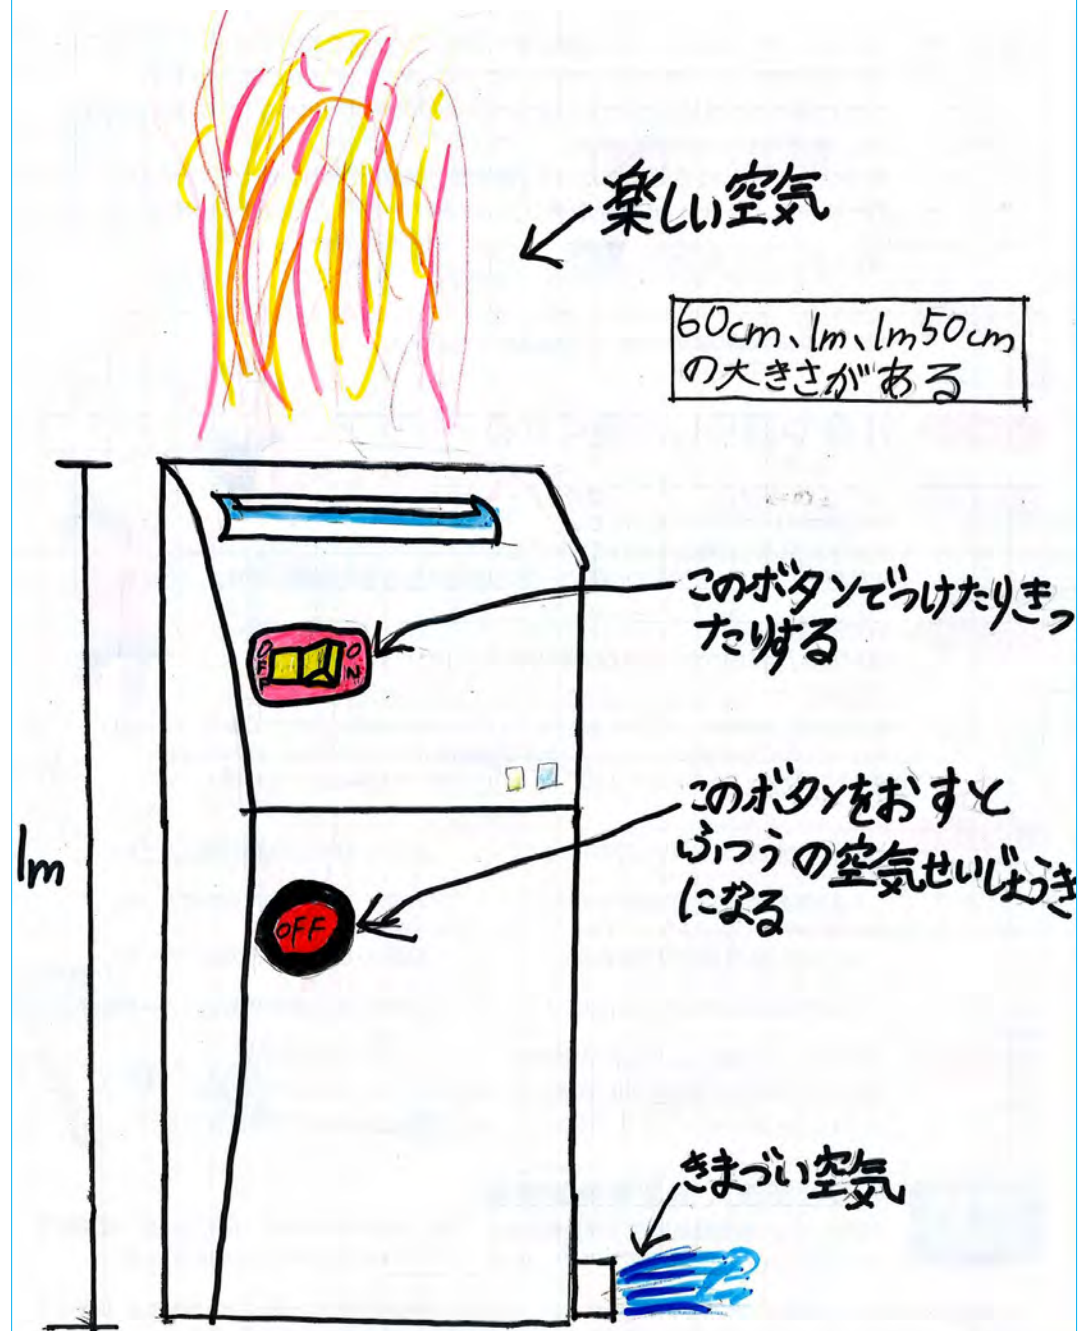 楽しい空気
60cm、1m、1m50cm
の大きさがある
このボタンでつけたりきっ
たりする
OFF
ON
1m
このボタンをおすと
ふつうの空気せいじょうき
になる
OFF
きまづい空気